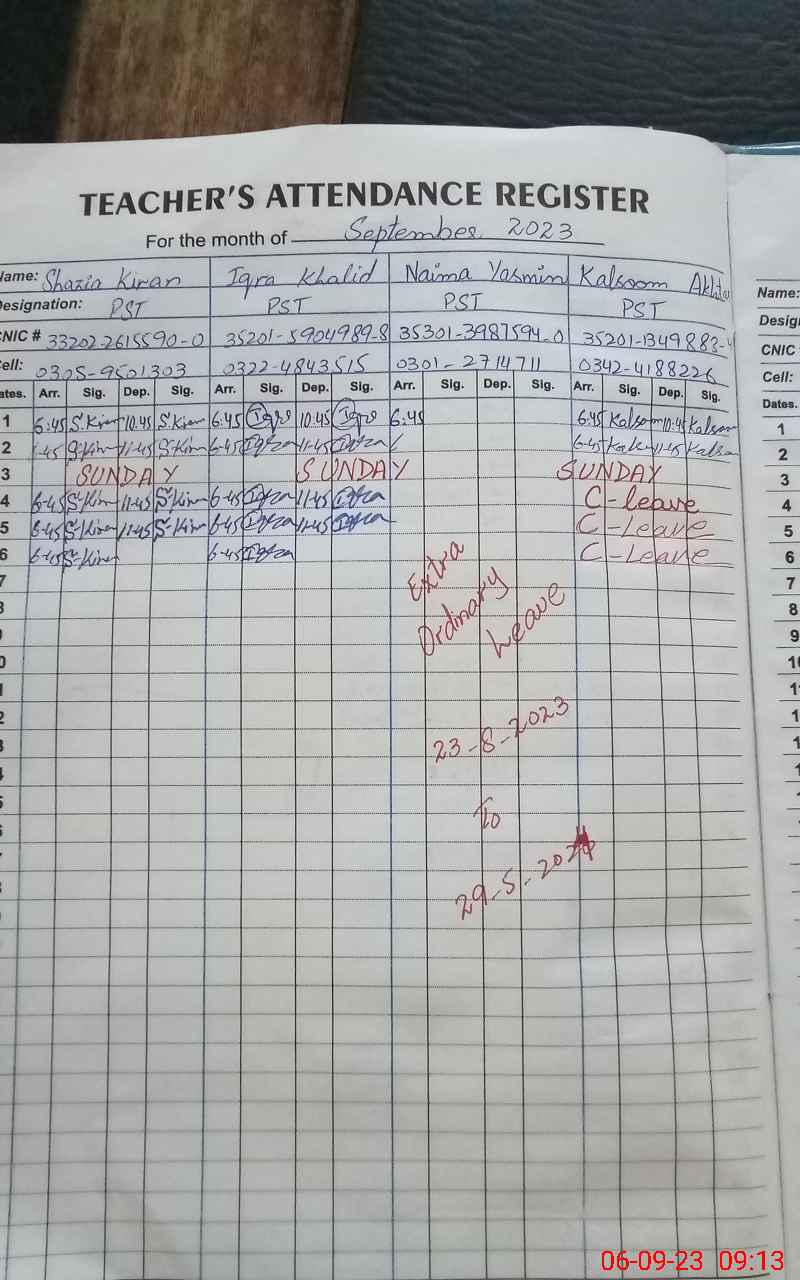 TEACHER'S ATTENDANCE REGISTER
For the month of September 2023
Name: Shazia Kiran Iqra Khalid Naima Yasmin Kalsoom Akhtar Name:
Designation: PST PST PST PST Desig
CNIC # 33202-2615590-0 35201-5904989-8 35301-3987594-0 35201-1349883-4 CNIC
Cell: 0305-9501303 0322-4843515 0301-2714711 0342-4188226 Cell:
ates. Arr. Sig. Dep. Sig. Arr. Sig. Dep. Sig. Arr. Sig. Dep. Sig. Arr. Sig. Dep. Sig. Dates.
1 6:45 S.Kiran 10:45 S.Kiran 6:45 Iqra 10:45 Iqra 6:45 6:45 Kalsoom 10:45 Kalsoom 1
2 6-45 S.Kiran 11-45 S.Kiran 6-45 Iqra 11-45 Iqra 6-45 Kalsoom 11-45 Kalsoom 2
3 SUNDAY SUNDAY SUNDAY 3
4 6-45 S.Kiran 11-45 S.Kiran 6-45 Iqra 11-45 Iqra C-leave 4
5 6-45 S.Kiran 11-45 S.Kiran 6-45 Iqra 11-45 Iqra C-Leave 5
6 6-45 S.Kiran 6-45 Iqra C-Leave 6
Extra
Ordinary
Leave
7 7
8 8
9
0 10
1 1
2 1
23-8-2023
3 1
4 1
5 1
To
6
29-5-2024
06-09-23 09:13